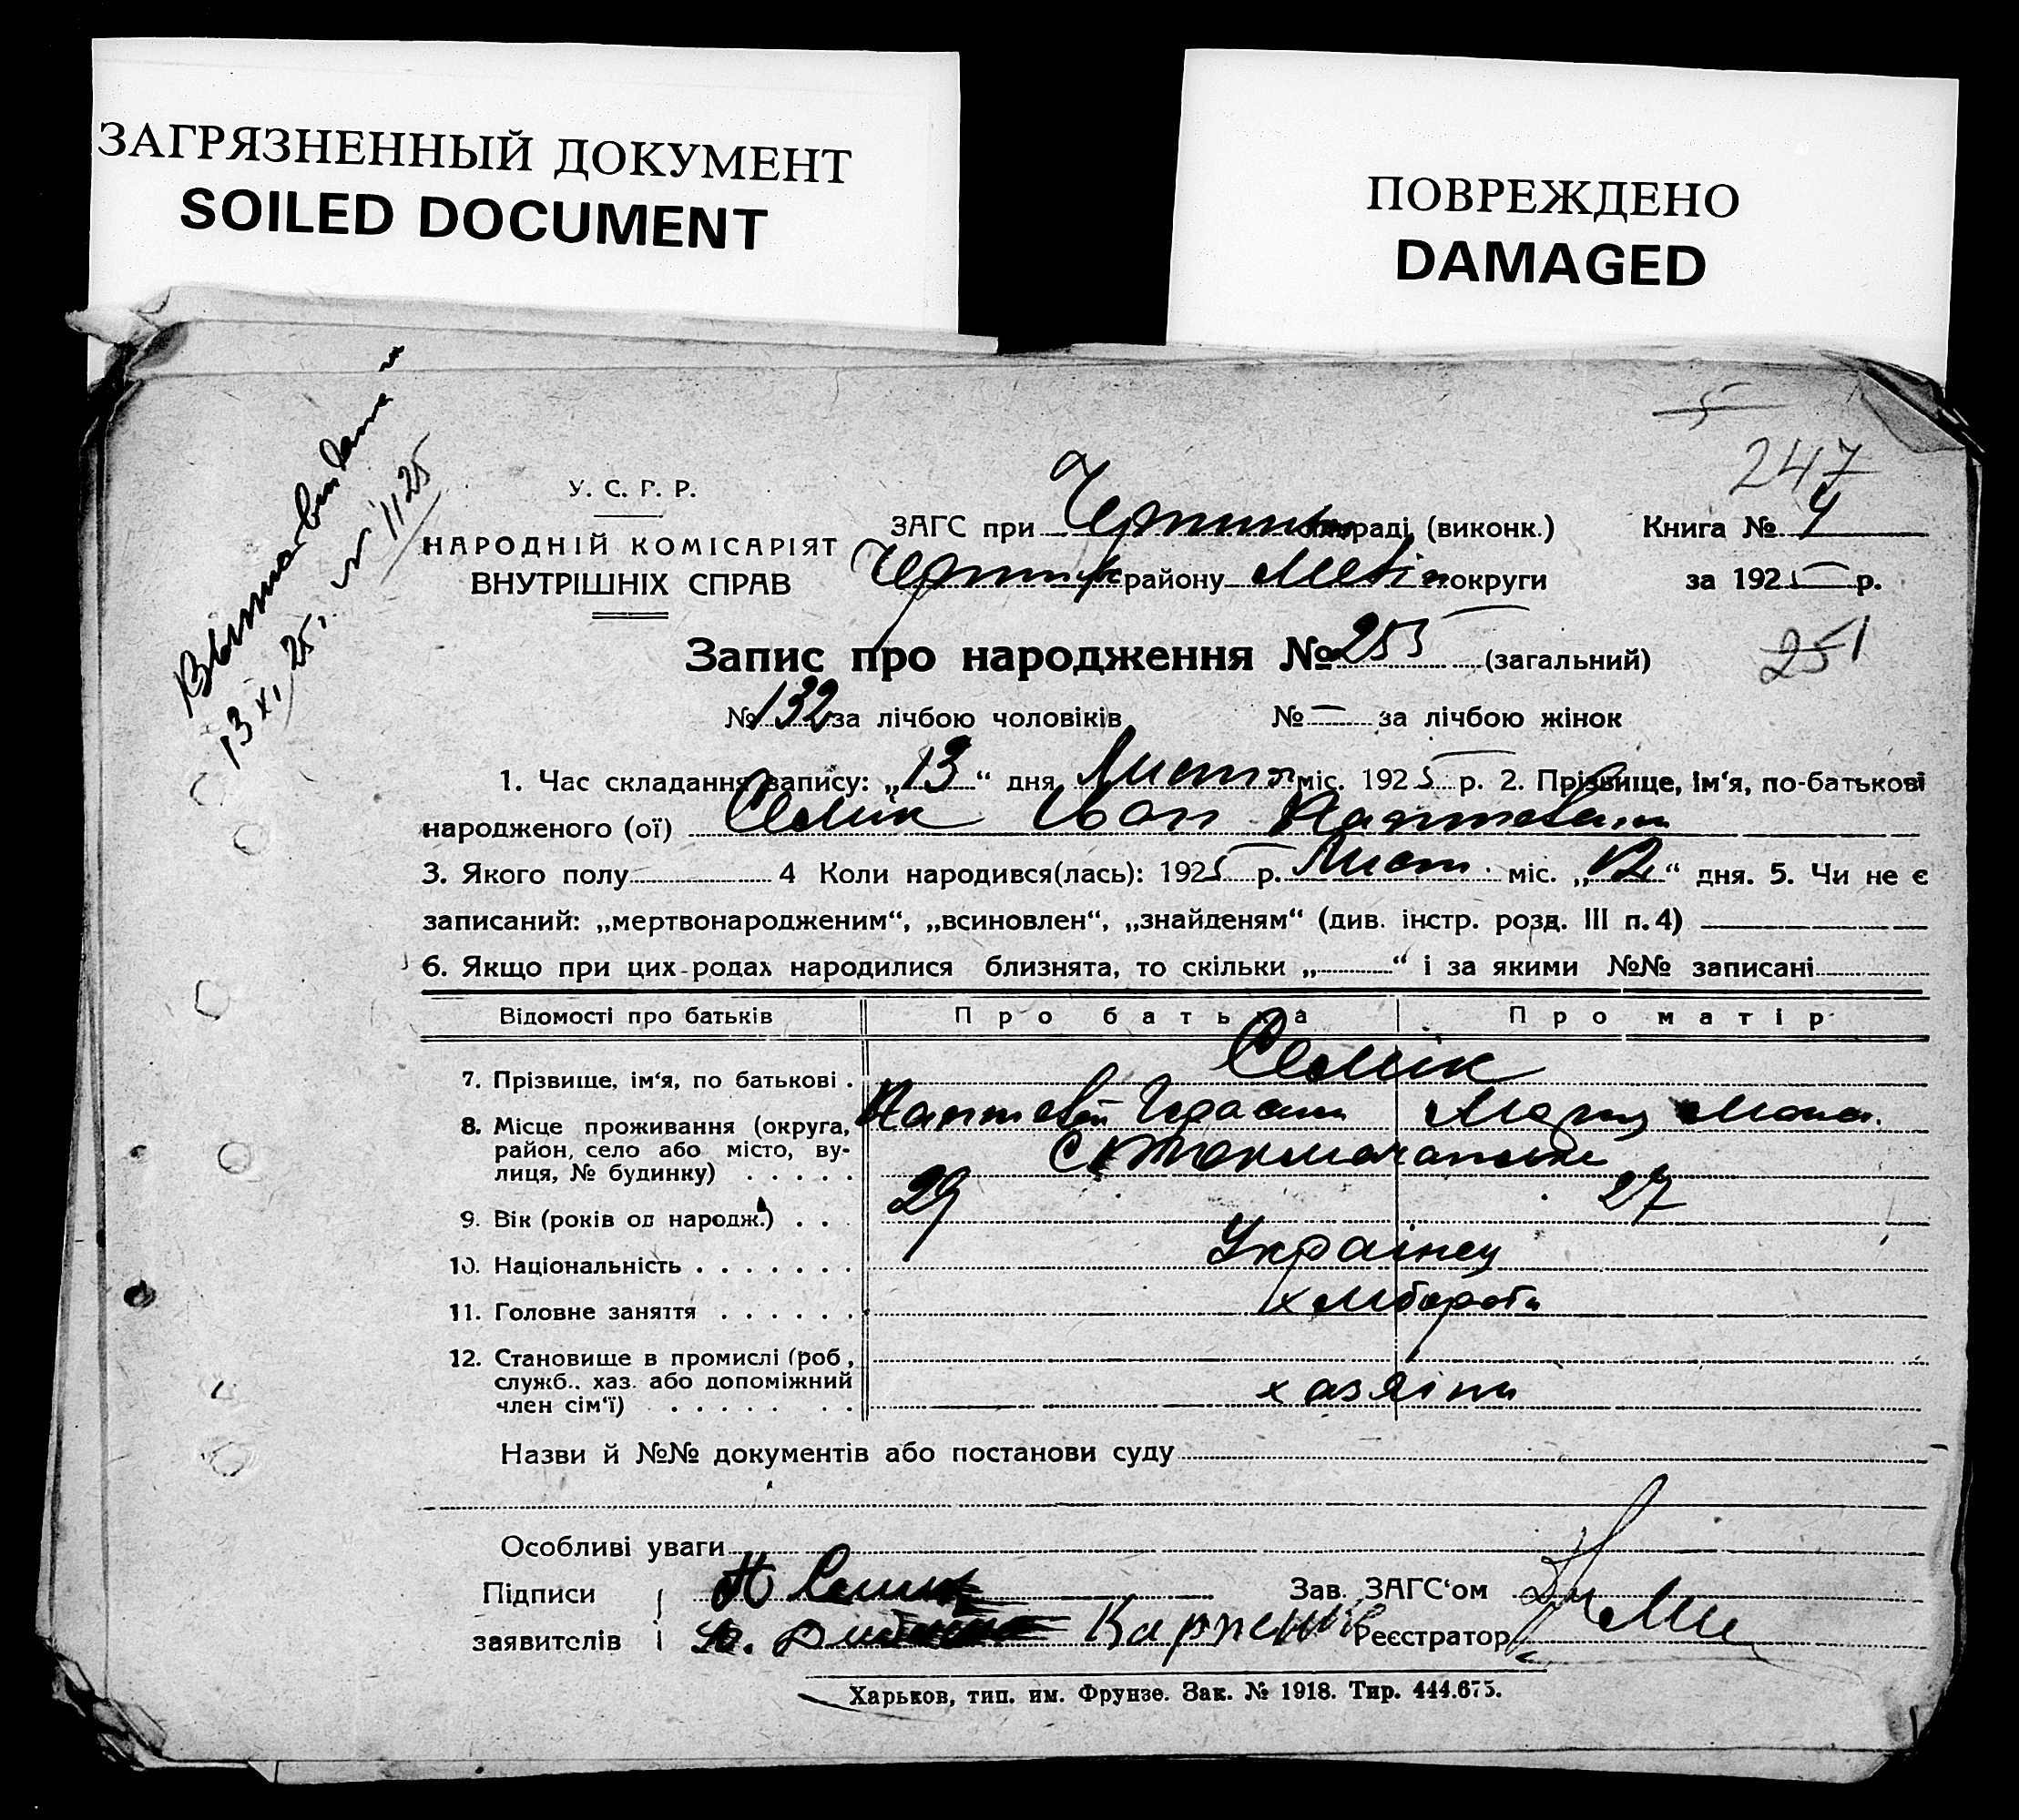 ЗАГРЯЗНЕННЫЙ ДОКУМЕНТ
SOILED DOCUMENT
ПОВРЕЖДЕНО
DAMAGED
5
247
13 XI 25 № 1125
У. С. Р. Р.
НАРОДНІЙ КОМІСАРІЯТ
ВНУТРІШНІХ СПРАВ
ЗАГС при раді (виконк.) Книга № 4
району округи за 1925 р.
Запис про народження № 255 (загальний)
251
№ 132 за лічбою чоловіків № — за лічбою жінок
1. Час складання запису: „13“ дня міс. 1925 р. 2. Прізвище, ім‘я, по-батькові
народженого (ої) Семік Іван
3. Якого полу 4 Коли народився(лась): 1925 р. Лист. міс. „12“ дня. 5. Чи не є
записаний: „мертвонародженим“, „всиновлен“, „знайденям“ (див. інстр. розд. III п. 4)
6. Якщо при цих родах народилися близнята, то скільки „ “ і за якими №№ записані
Відомості про батьків Про батька Про матір
7. Прізвище, ім‘я, по батькові . Семік
8. Місце проживання (округа,
район, село або місто, ву-
лиця, № будинку) . . . . .
9. Вік (років од народж.) . . . 29 27
10. Національність . . . . . . . Українец
11. Головне заняття . . . . . .
12. Становище в промислі (роб,
служб., хаз. або допоміжний
член сім‘ї) . . . . . . . хазяіни
Назви й №№ документів або постанови суду
Особливі уваги
Підписи Зав. ЗАГС‘ом
заявителів Реєстратор
Харьков, тип. им. Фрунзе. Зак. № 1918. Тир. 444.675.